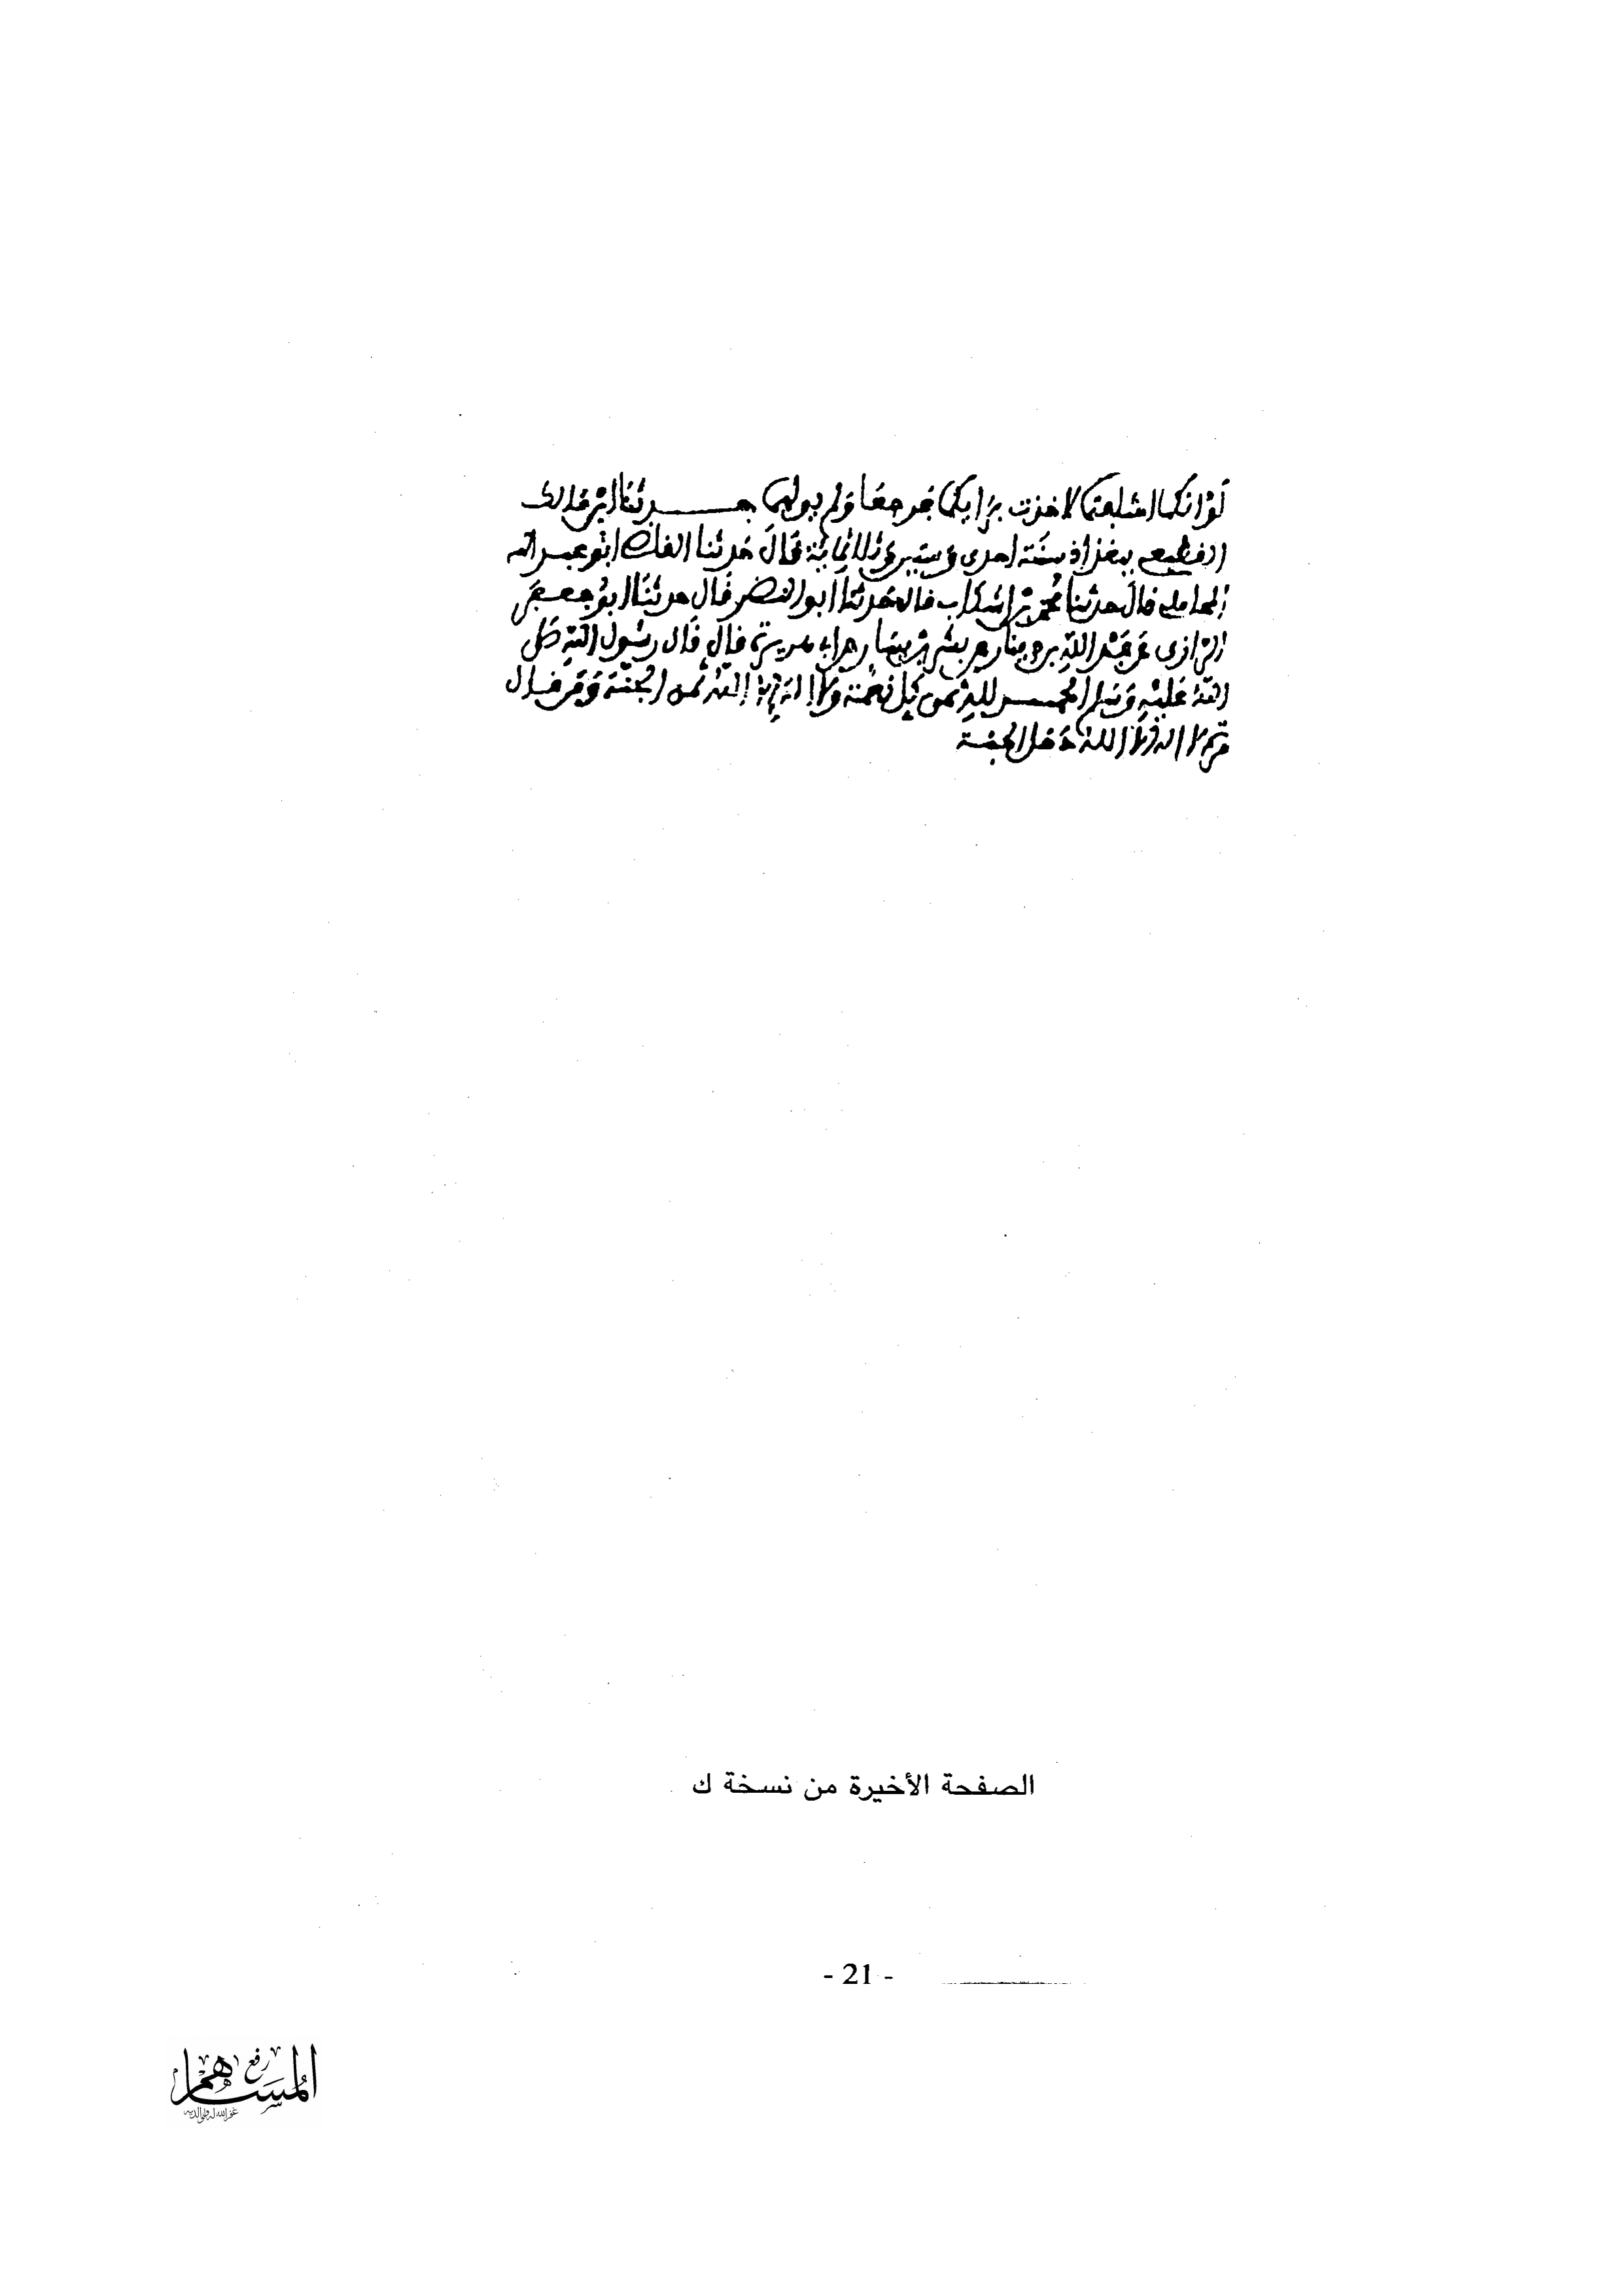 لو انكما اسلمتما لاخذت برايكما فرجعا ولم يولهما حدثنا ابن مالك
القطيعي ببغداذ سنة احدى وستين وثلاثماية قال حدثنا القاضي ابو عبد الله
المحاملي قال حدثنا محمد بن اشكاب قال حدثنا ابو النضر قال حدثنا ابو جعفر
الرازى عن عبد الله بن دينار عن بشر بن يسار عن ابى هريرة قال قال رسول الله صلى
الله عليه وسلم الحمد لله ثمن كل نعمة ولا اله الا الله ثمن الجنة ومن قال
لا اله الا الله دخل الجنة
الصفحة الأخيرة من نسخة ك
- 21 -
رفع
المساهم
غفر الله له ولوالديه